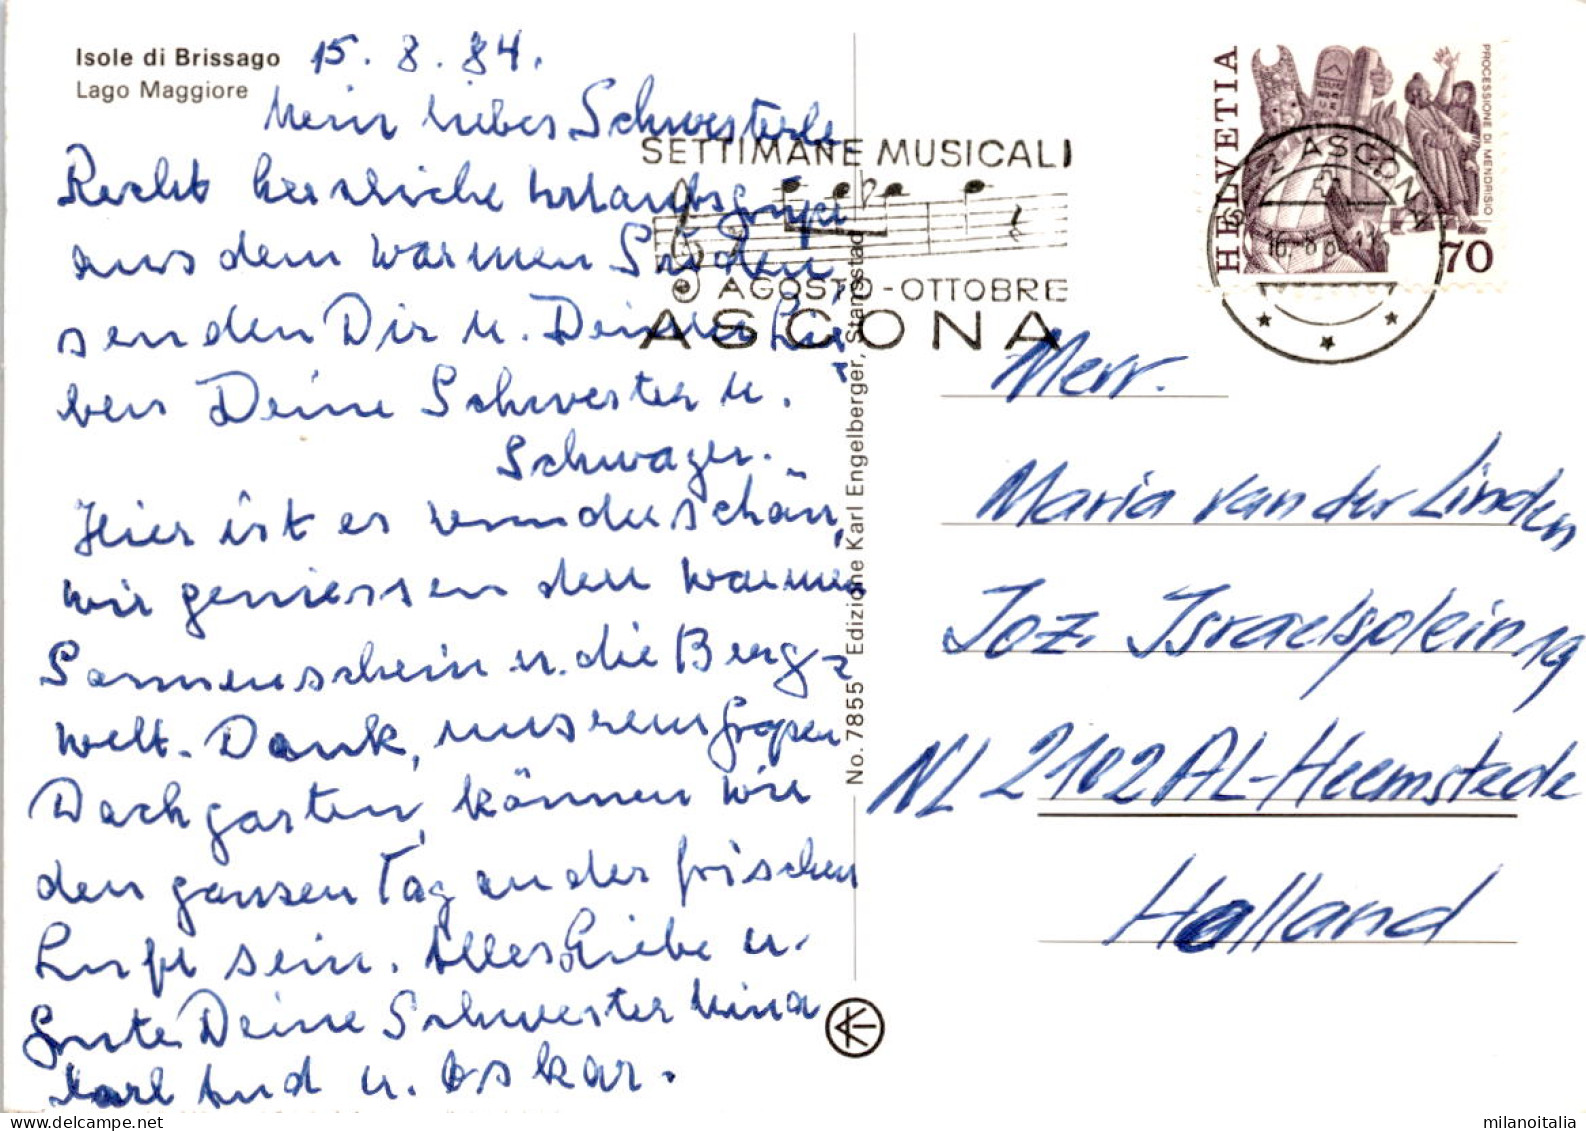 Isole di Brissago
Lago Maggiore
15. 8. 84.
Mein liebes Schwesterle
Recht herzliche Urlaubsgrüße
aus dem warmen Süden
senden Dir u. Deinen Lie-
ben Deine Schwester u.
Schwager.
Hier ist es wunderschön,
wir geniessen den warmen
Sonnenschein u. die Berg-
welt. Dank, unseren großen
Dachgarten, können wir
den ganzen Tag an der frischen
Luft sein. Alles Liebe u.
Gute Deine Schwester
u. Oskar.
No. 7855 Edizione Karl Engelberger, Stansstad
SETTIMANE MUSICALI
AGOSTO-OTTOBRE
ASCONA
HELVETIA
PROCESSIONE DI MENDRISIO
70
ASCONA
Herr.
Maria van der Linden
Joz. Israelsplein 19
NL 2102 AL-Heemstede
Holland
milanoitalia